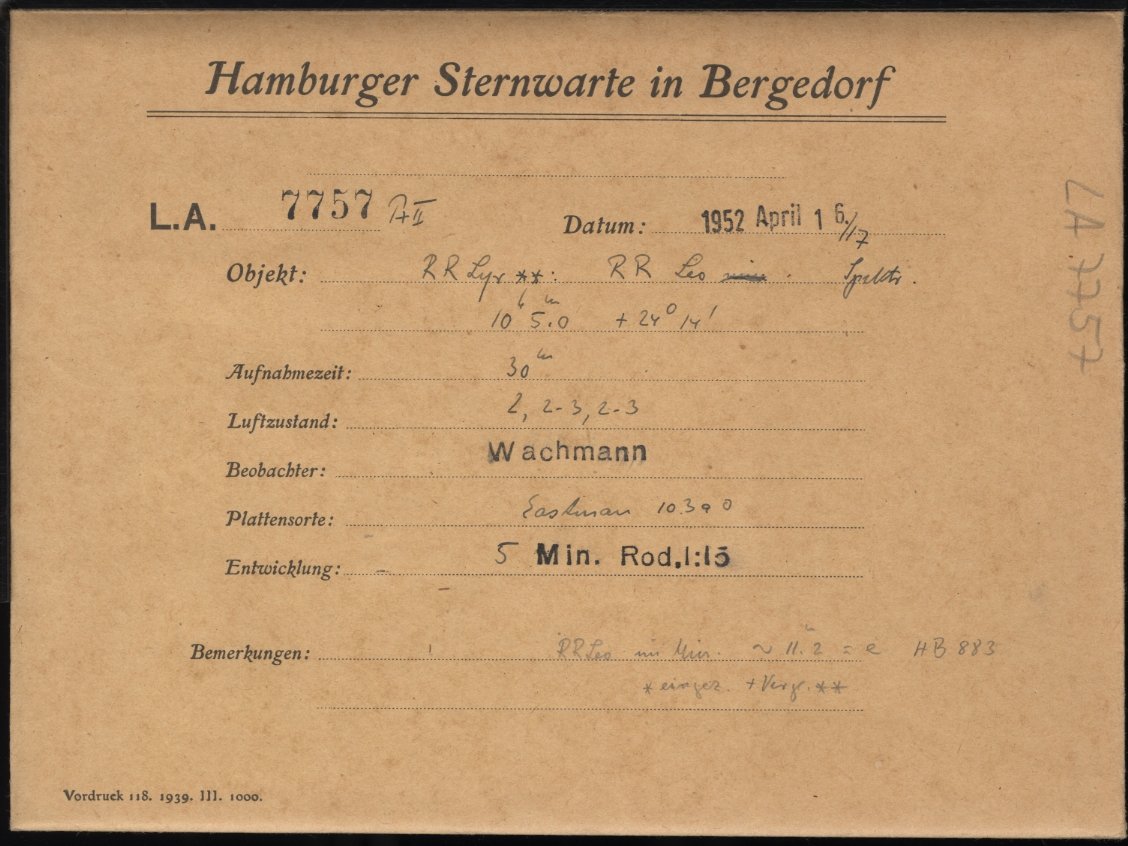 Hamburger Sternwarte in Bergedorf
L.A. 7757 PII
Datum: 1952 April 16./17
Objekt: RR Lyr **: RR Leo Spektr.
10h 5.m0 +24° 14'
Aufnahmezeit: 30m
Luftzustand: 2, 2-3, 2-3
Beobachter: Wachmann
Plattensorte: Eastman 103a0
Entwicklung: 5 Min. Rod.1:15
Bemerkungen: RR Leo im Min. ~ 11.m2 = e HB 883
* eingez. + Vergl. **
Vordruck 118. 1939. III. 1000.
LA 7757